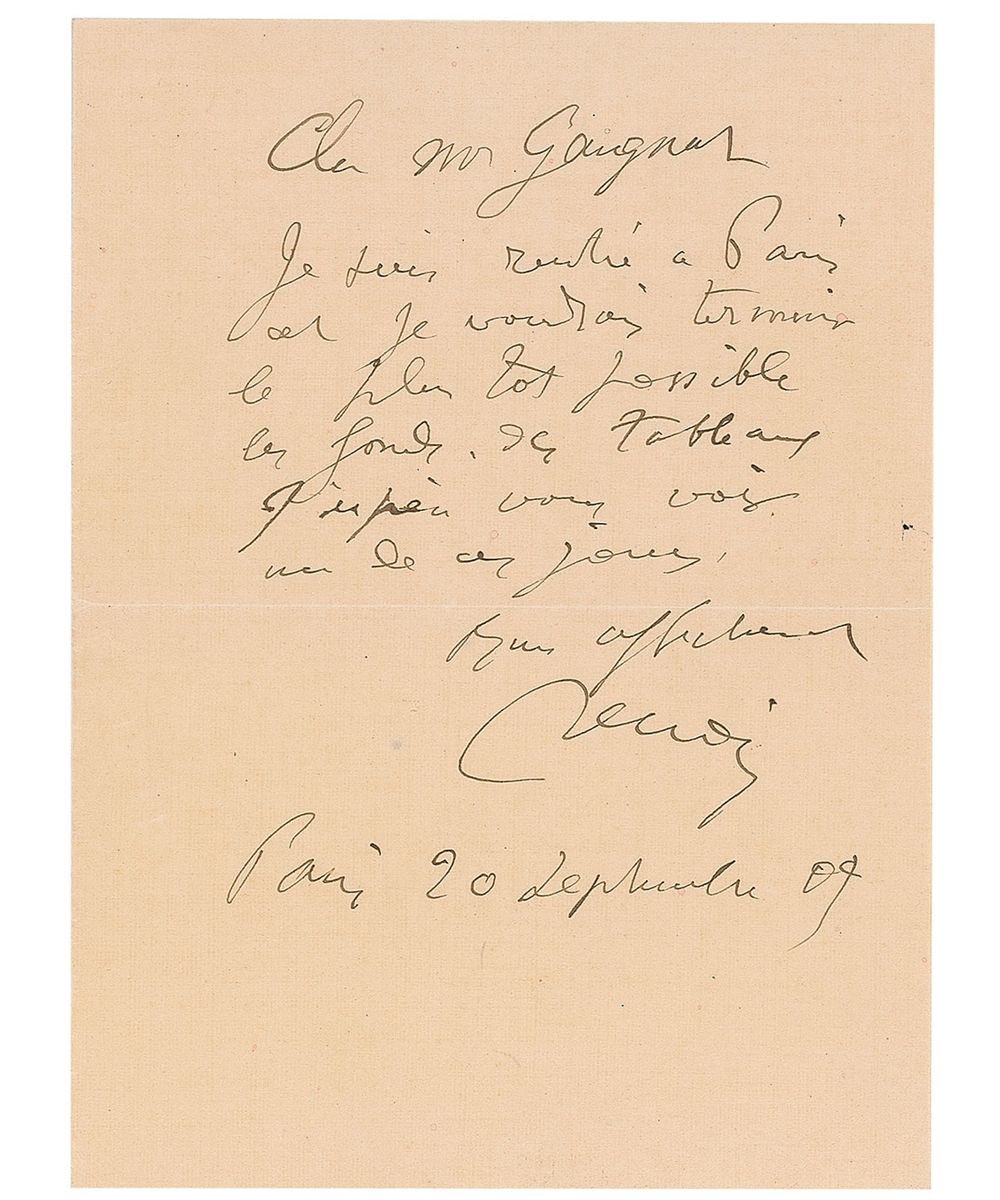 Cher Mr Gangnat
Je suis rentré a Paris
et je voudrais terminer
le plus tot possible
les fonds. des tableaux
J'espère vous voir
un de ces jours,
affectueusement
Renoir
Paris 20 septembre 09